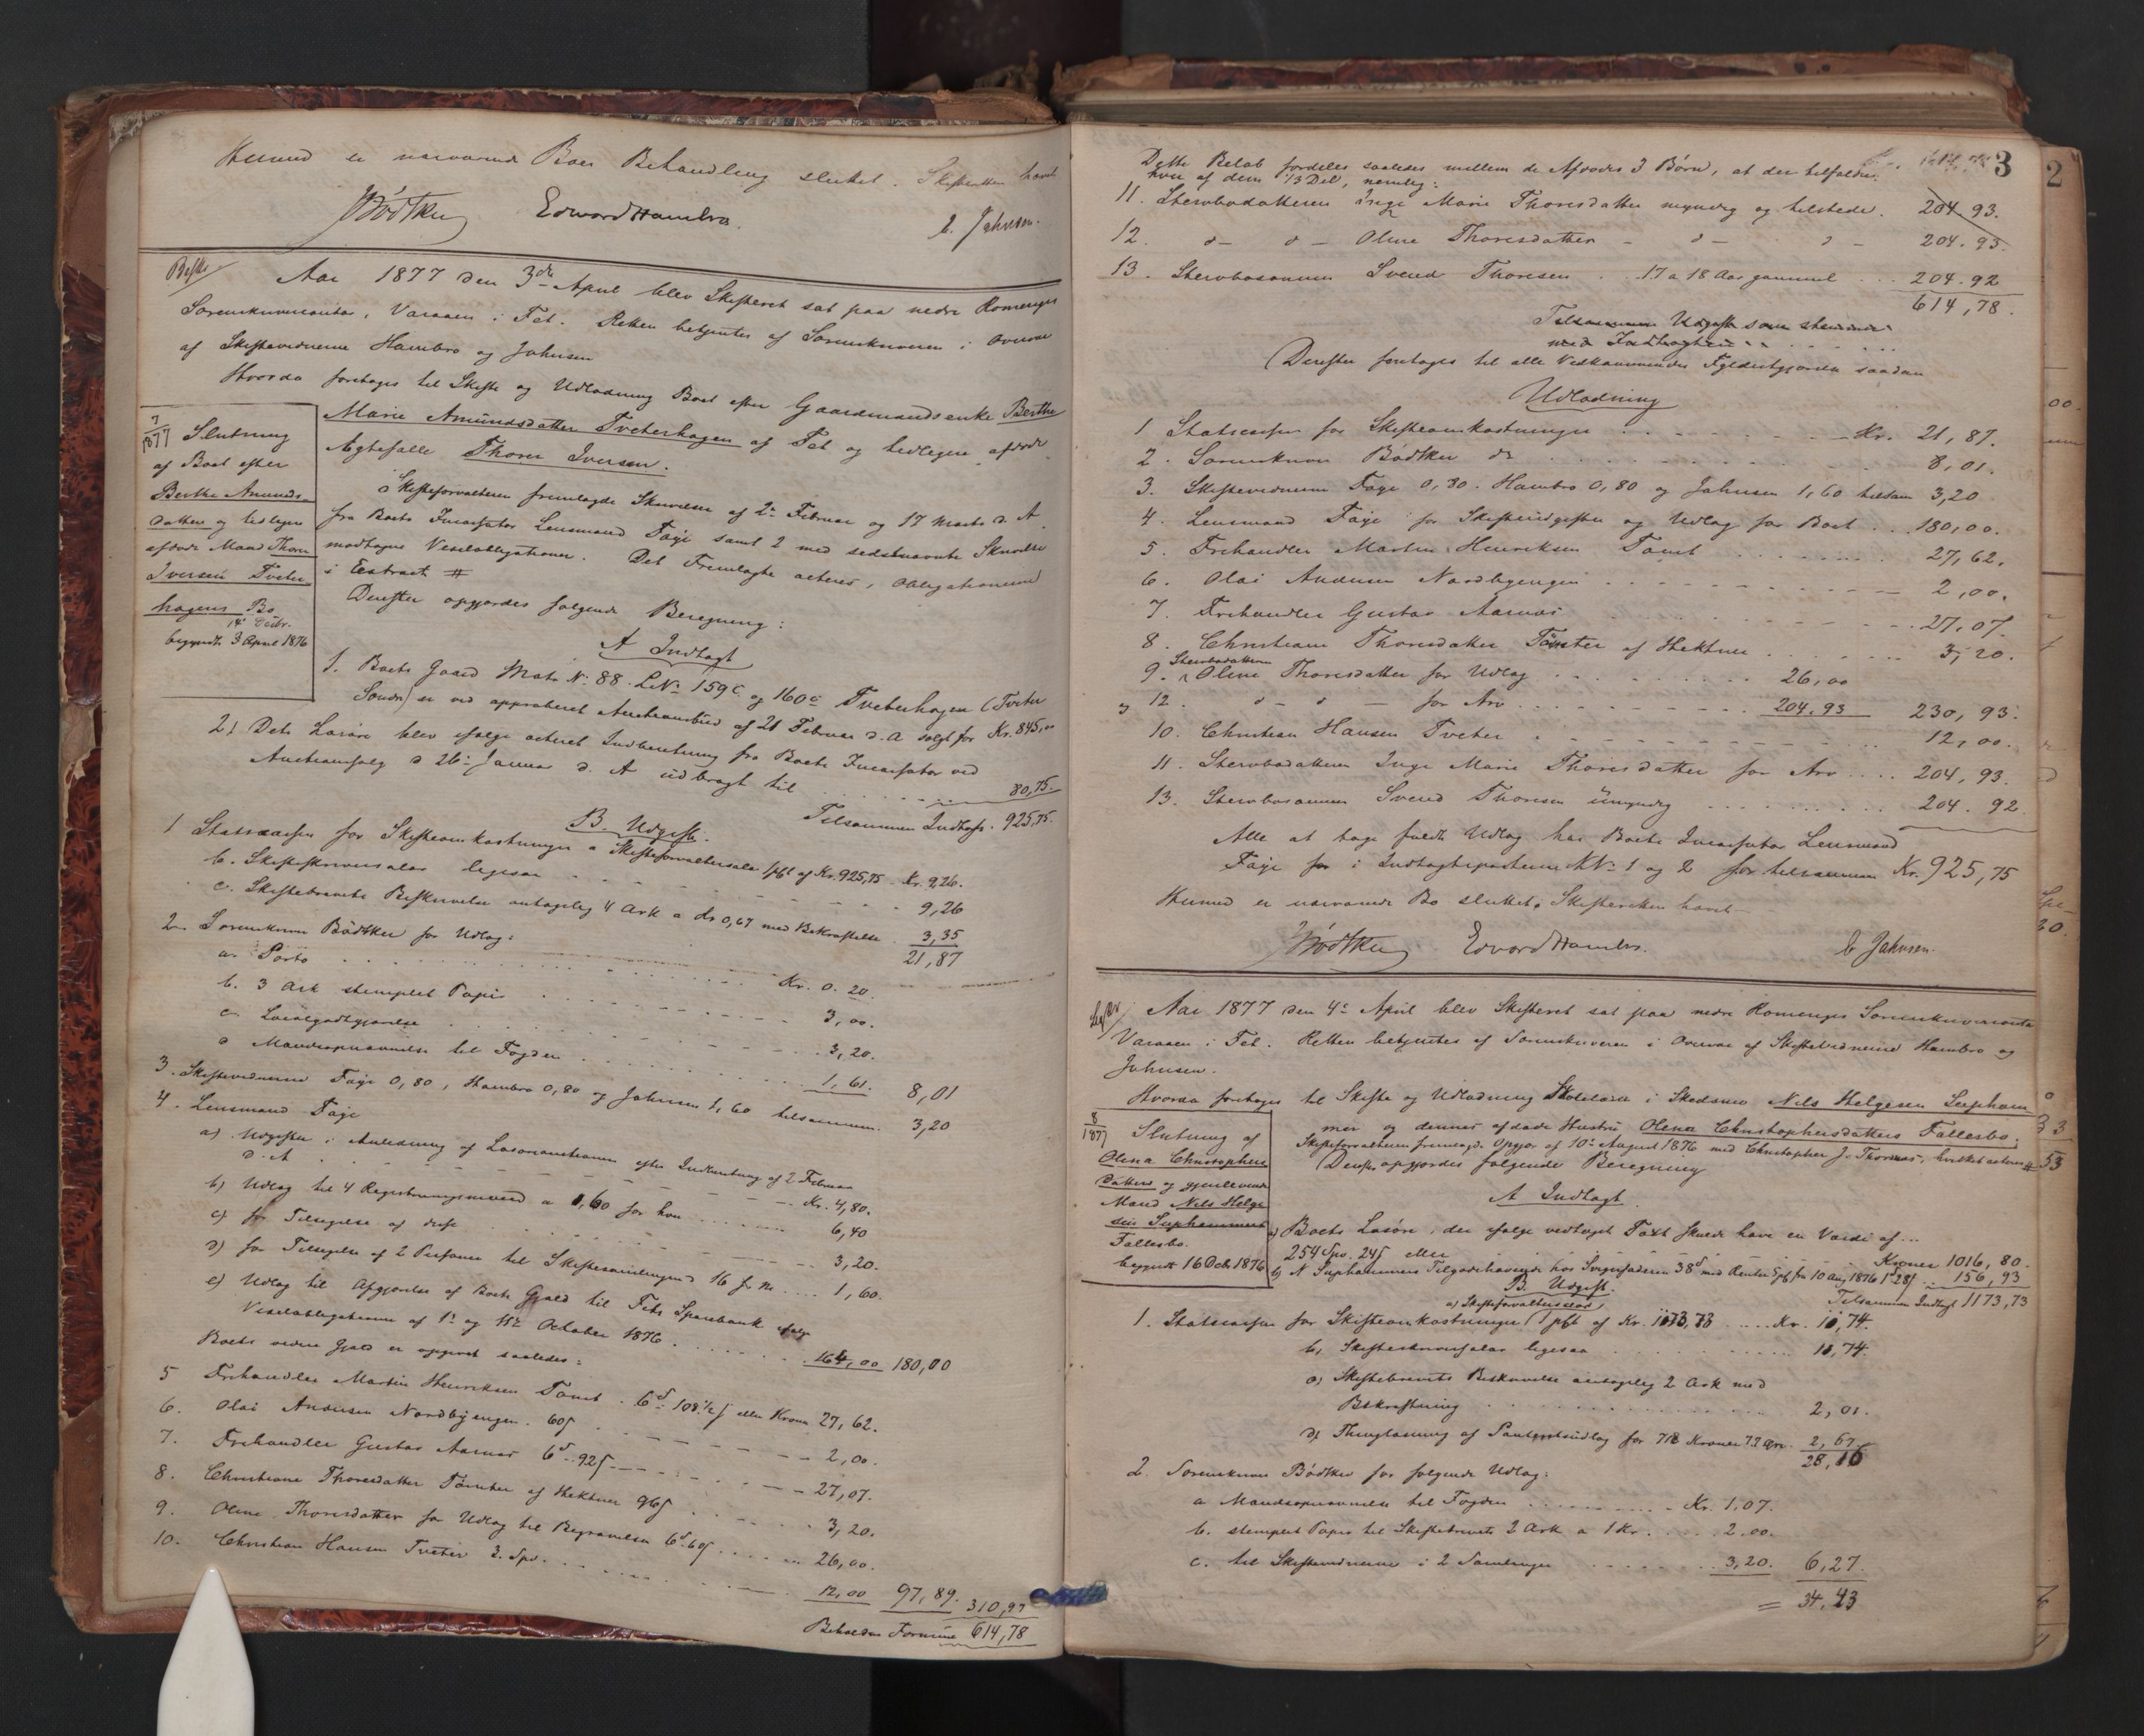 Hermed er nærværende Boes Behandling sluttet. Skifteretten hævet
Bödtker Edvard Hambro. C. Jahnsen.
Aar 1877 den 3die April blev Skifteret sat paa nedre Romeriges
Sorenskriverontor, Varaaen i Fet. Retten betjentes af Sorenskriveren i Overvær
af Skiftevidnerne Hambro og Jahnsen
Hvorda foretoges til Skifte og Udlodning Boet efter Gaardmandsenke Berthe
Marie Amundsdatter Tveterhagen af Fet og tidligere afdøde
Ægtefælle Thorer Iversen.
7/1877 Slutning
af Boet efter
Berthe Amunds-
datter og tidligere
afdøde Mand Thore
Iversen Tveter-
hagens Bo
14 Octbr.
begyndt 3 April 1876
Skifteforvalteren fremlagde Skrivelse af 2den Februar og 17 Marts d. A.
fra Boets Incassator Lensmand Faye samt 2 med sidstnævnte Skrivelse
modtagne Vexelobligationer. Det Fremlagte acteres, Obligationerne
i Extract #
Derefter opgjordes følgende Beregning:
A Indtægt
1. Boets Gaard Matr. No. 88. LNo 159c og 160c Tveterhagen (Tveter
Søndre) er ved approberet Auctionsbud af 21 Februar d. A solgt for Kr. 845,00
2) Dets Løsøre blev ifølge acteret Indberetning fra Boets Incassator ved
Auctionsalg d 26de Januar d. A udbragt til 80,75.
Tilsammen Indtægt. 925,75.
B. Udgift.
1 Statscassen for Skifteomkostninger a Skifteforvaltersalær 1pCt af Kr. 925,75 Kr. 9,26.
b. Skifteskriversalær ligesaa 9,26
c. Skiftebrevets Beskrivelse antagelig 4 Ark a Kr 0,67 med Bekræftelse 3,35
21,87
2. Sorenskriver Bödtker for Udlæg:
a. Porto Kr. 0.20.
b. 3 Ark stemplet Papir 3,00.
c. Localgodtgjørelse 3,20.
d Mandsopnævnelse til Fogden 1,61. 8,01
3. Skiftevidnerne Faye 0,80, Hambro 0,80 og Jahnsen 1,60 tilsammen. 3,20
4. Lensmand Faye
a) Udgifter i Anledning af Løsøreauctionen efter Indberetning af 2 Februar
d. A Kr. 4,80.
b) Udlæg til 4 Registreringsmænd a 1,60 for hver 6,40
c) for Tilsigelse af disse 3,20.
d) for Tilsigelse af 2 Personer til Skiftesamlingen d 16 f. M. 1,60.
e) Udlæg til Afgjørelse af Boets Gjæld til Fets Sparebank ifølge
Vexelobligationer af 1ste og 11te October 1876 164,00 180,00
Boets videre Gjæld er opgivet saaledes:
5 Frihandler Martin Henriksen Tomt. 6d 108½ s eller Kroner 27,62.
6. Olai Andersen Nordbyengen. 60s 2,00.
7. Frihandler Gustav Aarnæs 6d 92s 27,07.
8. Christiane Thoresdatter Tömter af Hektner 96s 3,20.
9. Oline Thoresdatter for Udlæg til Begravelsen 6d 60s 26,00.
10. Christian Hansen Tveter 3. Spd. 12,00 97,89. 310,97
Beholden Formue 614,78
3
Dette Beløb fordeles saaledes mellem de Afdødes 3 Børn, at der tilfalder
hver af dem 1/3 Del, nemlig:
11. Stervbodatteren Inge Marie Thoresdatter myndig og tilstede. 204.93.
12. d- d- Oline Thoresdatter - d- d- 204.93.
13. Stervbosønnen Svend Thoresen 17 a 18 Aar gammel 204.92
614,78.
Tilsammen Udgift som stemmer
med Indtægten
Derefter foretoges til alle Vedkommendes Fyldestgjørelse saadan
Udlodning
1 Statscassen for Skifteomkostninger Kr. 21,87.
2. Sorenskriver Bödtker do 8,01.
3. Skiftevidnerne Faye 0,80. Hambro 0,80 og Jahnsen 1,60 tilsam 3,20
4. Lensmand Faye for Skifteudgifter og Udlæg for Boet 180,00.
5. Frihandler Martin Henriksen Tomt 27,62.
6. Olai Andersen Nordbyengen 2,00.
7. Frihandler Gustav Aarnæs 27,07.
8. Christiane Thoresdatter Tömter af Hektner 3,20.
Stervbodatteren
9. Oline Thoresdatter for Udlæg 26,00
og 12. d- d- for Arv 204.93 230,93.
10. Christian Hansen Tveter 12,00.
11. Stervbodatteren Inge Marie Thoresdatter for Arv 204,93.
13. Stervbosønnen Svend Thoresen umyndig 204.92
Alle at tage fuldt Udlæg hos Boets Incassator Lensmand
Faye for i Indtægtsposterne No. 1 og 2 for tilsammen Kr. 925,75
Hermed er nærværende Bo sluttet. Skifteretten hævet
Bödtker Edvard Hambro. C Jahnsen.
Aar 1877 den 4de April blev Skifteret sat paa nedre Romeriges Sorenskriverontor
Varaaen i Fet. Retten betjentes af Sorenskriveren i Overvær af Skiftevidnerne Hambro og
Jahnsen.
Hvorda foretoges til Skifte og Udlodning Skolelærer i Skedsmo Nils Helgesen Suphammer
og dennes afdøde Hustru Olena Christophersdatters Fallesbo.
Skifteforvalteren fremlagde Opgjør af 10de August 1876 med Christopher J. Thornæs, hvilket acteres #
Derefter opgjordes følgende Beregning
8/1877 Slutning af
Olena Christophers-
datters og gjenlevende
Mand Nils Helge-
sen Suphammers
Fallesbo.
begyndt 16 Octb 1876
A Indtægt
a) Boets Løsøre, der ifølge vedtaget Taxt skulde have en Værdi af
254 Spd. 24s eller Kroner 1016,80.
b) N Suphammers Tilgodehavende hos Svigerfaderen 38d med Renter 5pCt fra 10 Aug 1876 1d 28s 156,93
Tilsammen Indtægt 1173,73
B. Udgift.
a) Skifteforvaltersalær
1. Statscassen for Skifteomkostninger (1 pCt af Kr. 1173,73 Kr. 11,74.
b, Skifteskriversalær ligesaa 11,74.
c) Skiftebrevets Beskrivelse antagelig 2 Ark med
Bekræftning 2,01.
d) Thinglæsning af Panteretsudlæg for 718 Kroner 72 Øre. 2,67.
28,16
2. Sorenskriver Bödtker for følgende Udlæg:
a Mandsopnævnelse til Fogden Kr. 1,07.
b. stemplet Papir til Skiftebrevet 2 Ark a 1 Kr. 2.00.
c. til Skiftevidnerne i 2 Samlinger 3,20. 6,27.
= 34,43
2